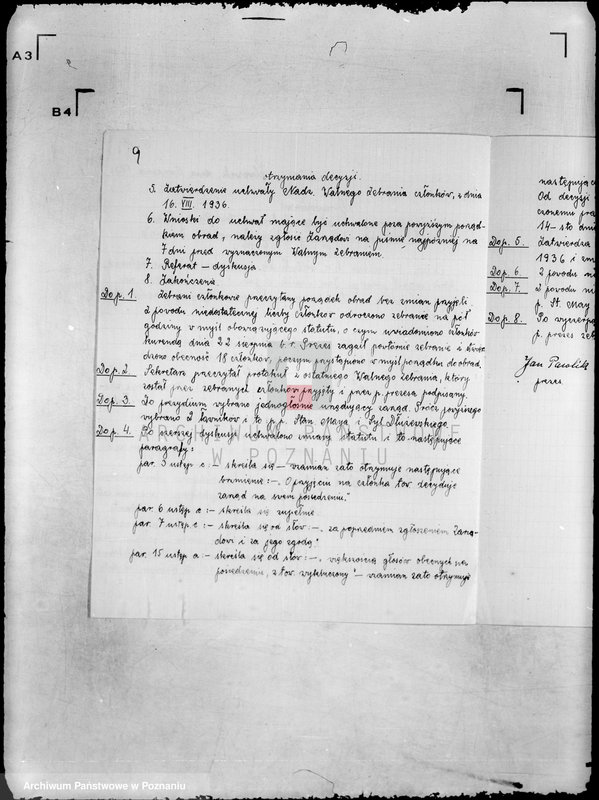 A3
B4
9
otrzymania decyzji.
5. Zatwierdzenie uchwały Nadz. Walnego Zebrania członków, z dnia
16. VIII. 1936.
6. Wnioski do uchwał mające być uchwalone poza powyższym porząd-
kiem obrad, należy zgłosić Zarządowi na piśmie najpóźniej na
7 dni przed wyznaczonym Walnym Zebraniem.
7. Referat – dyskusja
8. Zakończenie
Do p. 1. Zebrani członkowie przeczytany porządek obrad bez zmian przyjęli.
Z powodu niedostatecznej liczby członków odroczono zebranie na pół
godziny w myśl obowiązującego statutu, o czym uwiadomiono członków
kurendą dnia 22 sierpnia b. r. Prezes zagaił powtórnie zebranie i stwier-
dzono obecność 18 członków, poczym przystąpiono w myśl porządku do obrad,
Do p. 2. Sekretarz przeczytał protokuł z ostatniego Walnego Zebrania, który
został przez zebranych członków przyjęty i przez p. prezesa podpisany.
Do p. 3. Do prezydium wybrano jednogłośnie urzędujący zarząd. Procz powyższego
wybrano 2 ławników i to p. p. Stan. Maya i Syl. Dłużewskiego.
Do p. 4. Po szerszej dyskusji uchwalono zmiany statutu i to następujące
paragrafy:
par. 3 ustęp c – skreśla się – wzamian zato otrzymuje następujące
brzmienie: – „O przyjęciu na członka tow. decyduje
zarząd na swem posiedzeniu."
par. 6 ustęp c :– skreśla się zupełnie
par. 7 ustęp c :– skreśla się od słów: –, za poprzedniem zgłoszeniem Zarzą-
dowi i za jego zgodą."
par. 15 ustęp a :– skreśla się od słów: –, większością głosów obecnych na
posiedzeniu, z tow. wykluczony" – wzamian zato otrzymuje
następując
Od decyzji
czonemu prz
14-sto dni
Do p. 5. Zatwierdza
1936 i zm
Do p. 6. Z powodu ni
Do p. 7. Z powodu ni
p. St. May
Do p. 8. Po wyczerp
p. prezes zeb
Jan Pawlik
prezes
ARCHIWUM PAŃSTWOWE
W POZNANIU
Archiwum Państwowe w Poznaniu